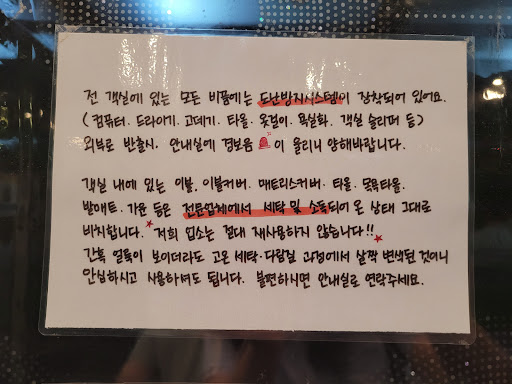 전 객실에 있는 모든 비품에는 도난방지시스템이 장착되어 있어요.
(컴퓨터. 드라이기. 고데기. 타올. 옷걸이. 욕실화. 객실 슬리퍼 등)
외부로 반출시. 안내실에 경보음 이 울리니 양해바랍니다.
객실 내에 있는 이불. 이불커버. 매트리스커버. 타올. 목욕타올.
발매트. 가운 등은 전문업체에서 세탁 및 소독되어 온 상태 그대로
비치합니다. 저희 업소는 절대 재사용하지 않습니다!!
간혹 얼룩이 보이더라도 고온 세탁·다림질 과정에서 살짝 변색된 것이니
안심하시고 사용하셔도 됩니다. 불편하시면 안내실로 연락주세요.